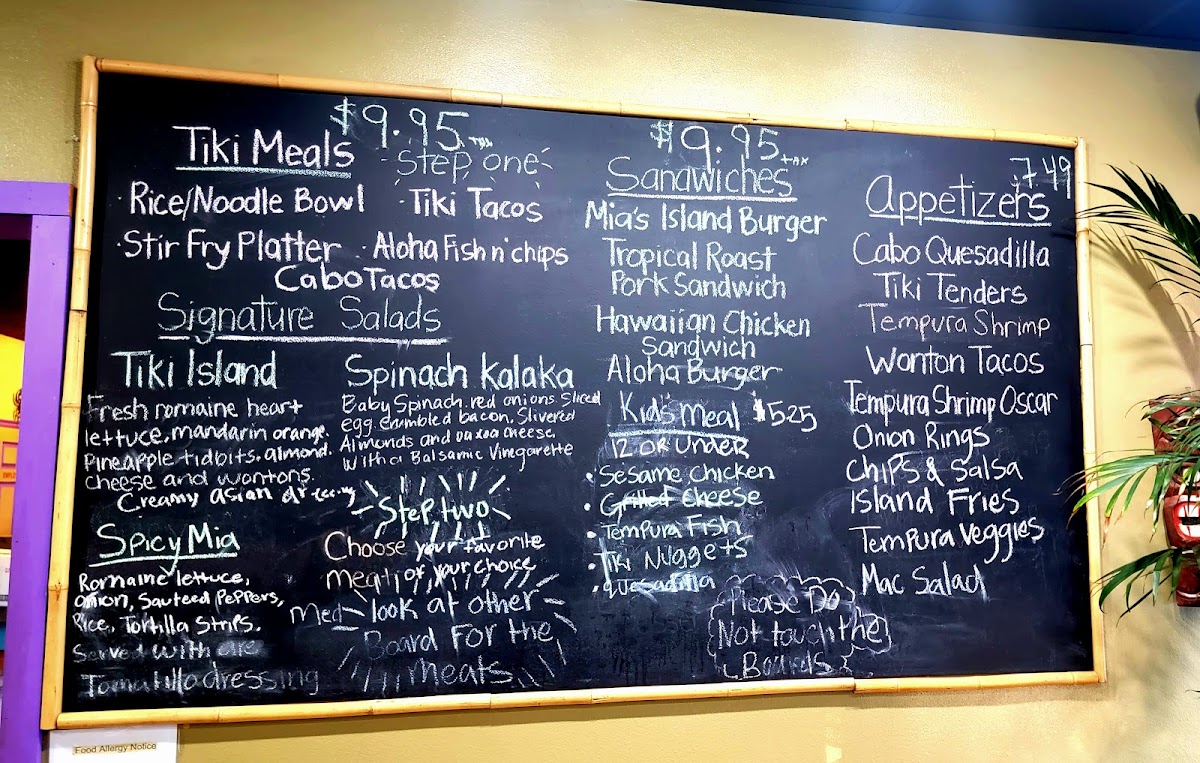 $9.95 tax
Tiki Meals
Step one
· Rice/Noodle Bowl
· Tiki Tacos
· Stir Fry Platter
· Aloha Fish n' chips
Cabo Tacos
Signature Salads
Tiki Island
Fresh romaine heart
lettuce, mandarin orange,
Pineapple tidbits, almond,
cheese and wontons.
Creamy asian
Spicy Mia
Romaine lettuce,
onion, Sauteed Peppers,
Rice, Tortilla strips.
Served with
Tomatillo dressing
Spinach Kalaka
Baby Spinach. red onions Sliced
egg crumbled bacon, Slivered
Almonds and cheese,
with a Balsamic Vinegarette
Step two
Choose your favorite
meat, of your choice
look at other
Board For the
meats
$9.95 tax
Sandwiches
Mia's Island Burger
Tropical Roast
Pork Sandwich
Hawaiian Chicken
Sandwich
Aloha Burger
Kid's Meal $5.25
12 or under
· Sesame Chicken
· Grilled Cheese
· Tempura Fish
· Tiki Nuggets
· Quesadilla
Please Do
Not touch the
Boards
7.49
Appetizers
Cabo Quesadilla
Tiki Tenders
Tempura Shrimp
Wonton Tacos
Tempura Shrimp Oscar
Onion Rings
Chips & Salsa
Island Fries
Tempura Veggies
Mac Salad
Food Allergy Notice